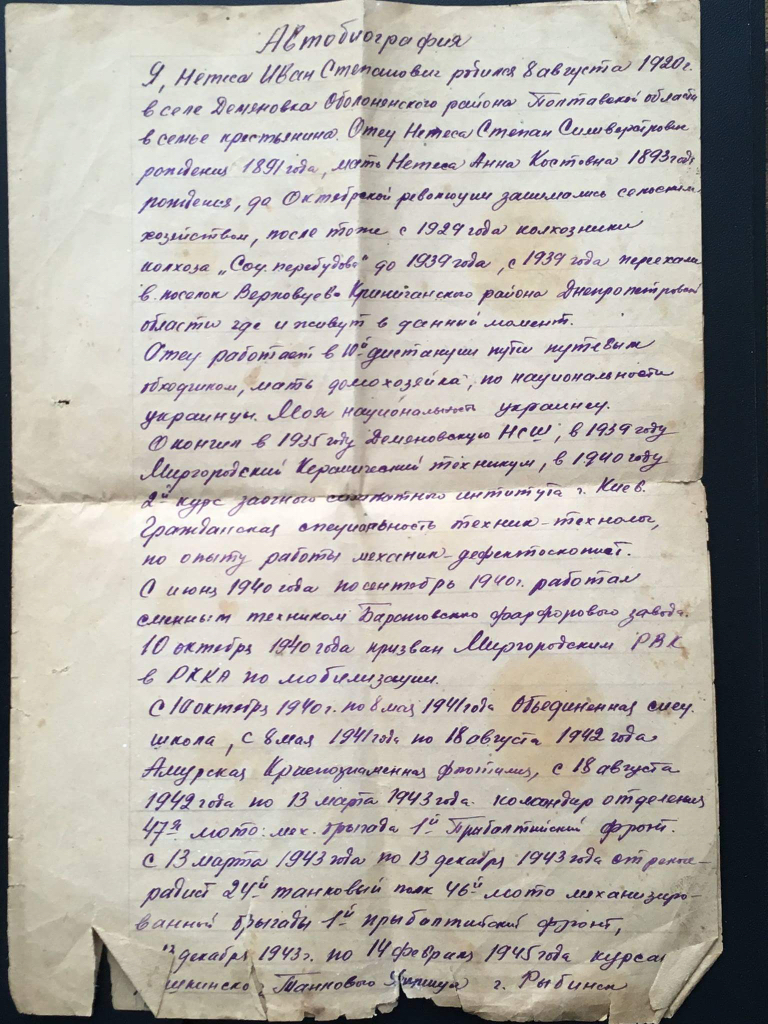 Автобиография
Я, Нетеса Иван Степанович родился 8 августа 1920 г.
в селе Демяновка Оболонянского района Полтавской области
в семье крестьянина. Отец Нетеса Степан
рождения 1891 года, мать Нетеса Анна Костовна 1893 года
рождения, до Октябрской революции занимались сельским
хозяйством, после тоже с 1929 года колхозники
колхоза „Соц. перебудова" до 1939 года, с 1939 года переехали
в поселок Верховцево Криничанского района Днепропетровской
области где и живут в данный момент.
Отец работает в 10й дистанции пути путевым
обходчиком, мать домохозяйка, по национальности
украинцы. Моя национальность украинец.
Окончил в 1935 году Демяновскую НСШ, в 1939 году
Миргородский Керамический техникум, в 1940 году
2й курс заочного института г. Киев.
Гражданская специальность техник-технолог,
по опыту работы механик-дефектоскопист.
С июня 1940 года по сентябрь 1940 г. работал
сменным техником фарфорового завода.
10 октября 1940 года призван Миргородским РВК
в РККА по мобилизации.
С 10 октября 1940 г. по 8 мая 1941 года Объединенная
школа, с 8 мая 1941 года по 18 августа 1942 года
Амурская Краснознаменная флотилия, с 18 августа
1942 года по 13 марта 1943 года командир отделения
47я мото. мех. брыгада 1й Прибалтийский фронт.
С 13 марта 1943 года по 13 декабря 1943 года
радист 24й танковый полк 46й мото механизиро-
ванной брыгады 1й прыбалтийский фронт,
декабря 1943 г. по 14 февраля 1945 года
Танкового г. Рыбинск